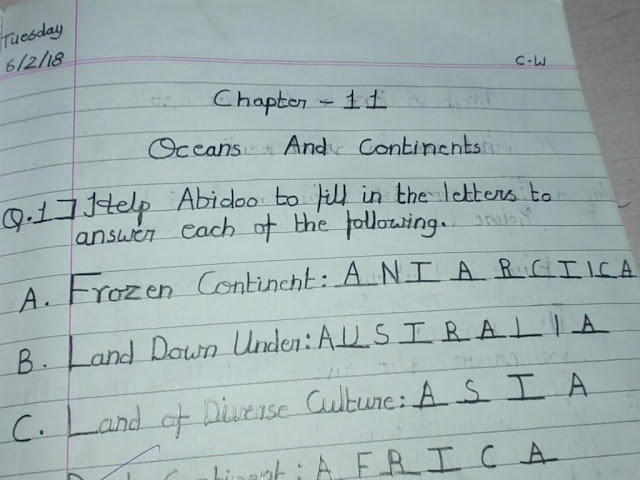 Tuesday
6/2/18
C.W
Chapter - 11
Oceans And Continents
Q.1] Help Abidoo to fill in the letters to
answer each of the following.
A. Frozen Continent: A N T A R C T I C A
B. Land Down Under: A U S T R A L I A
C. Land of Diverse Culture: A S I A
Continent: A F R I C A